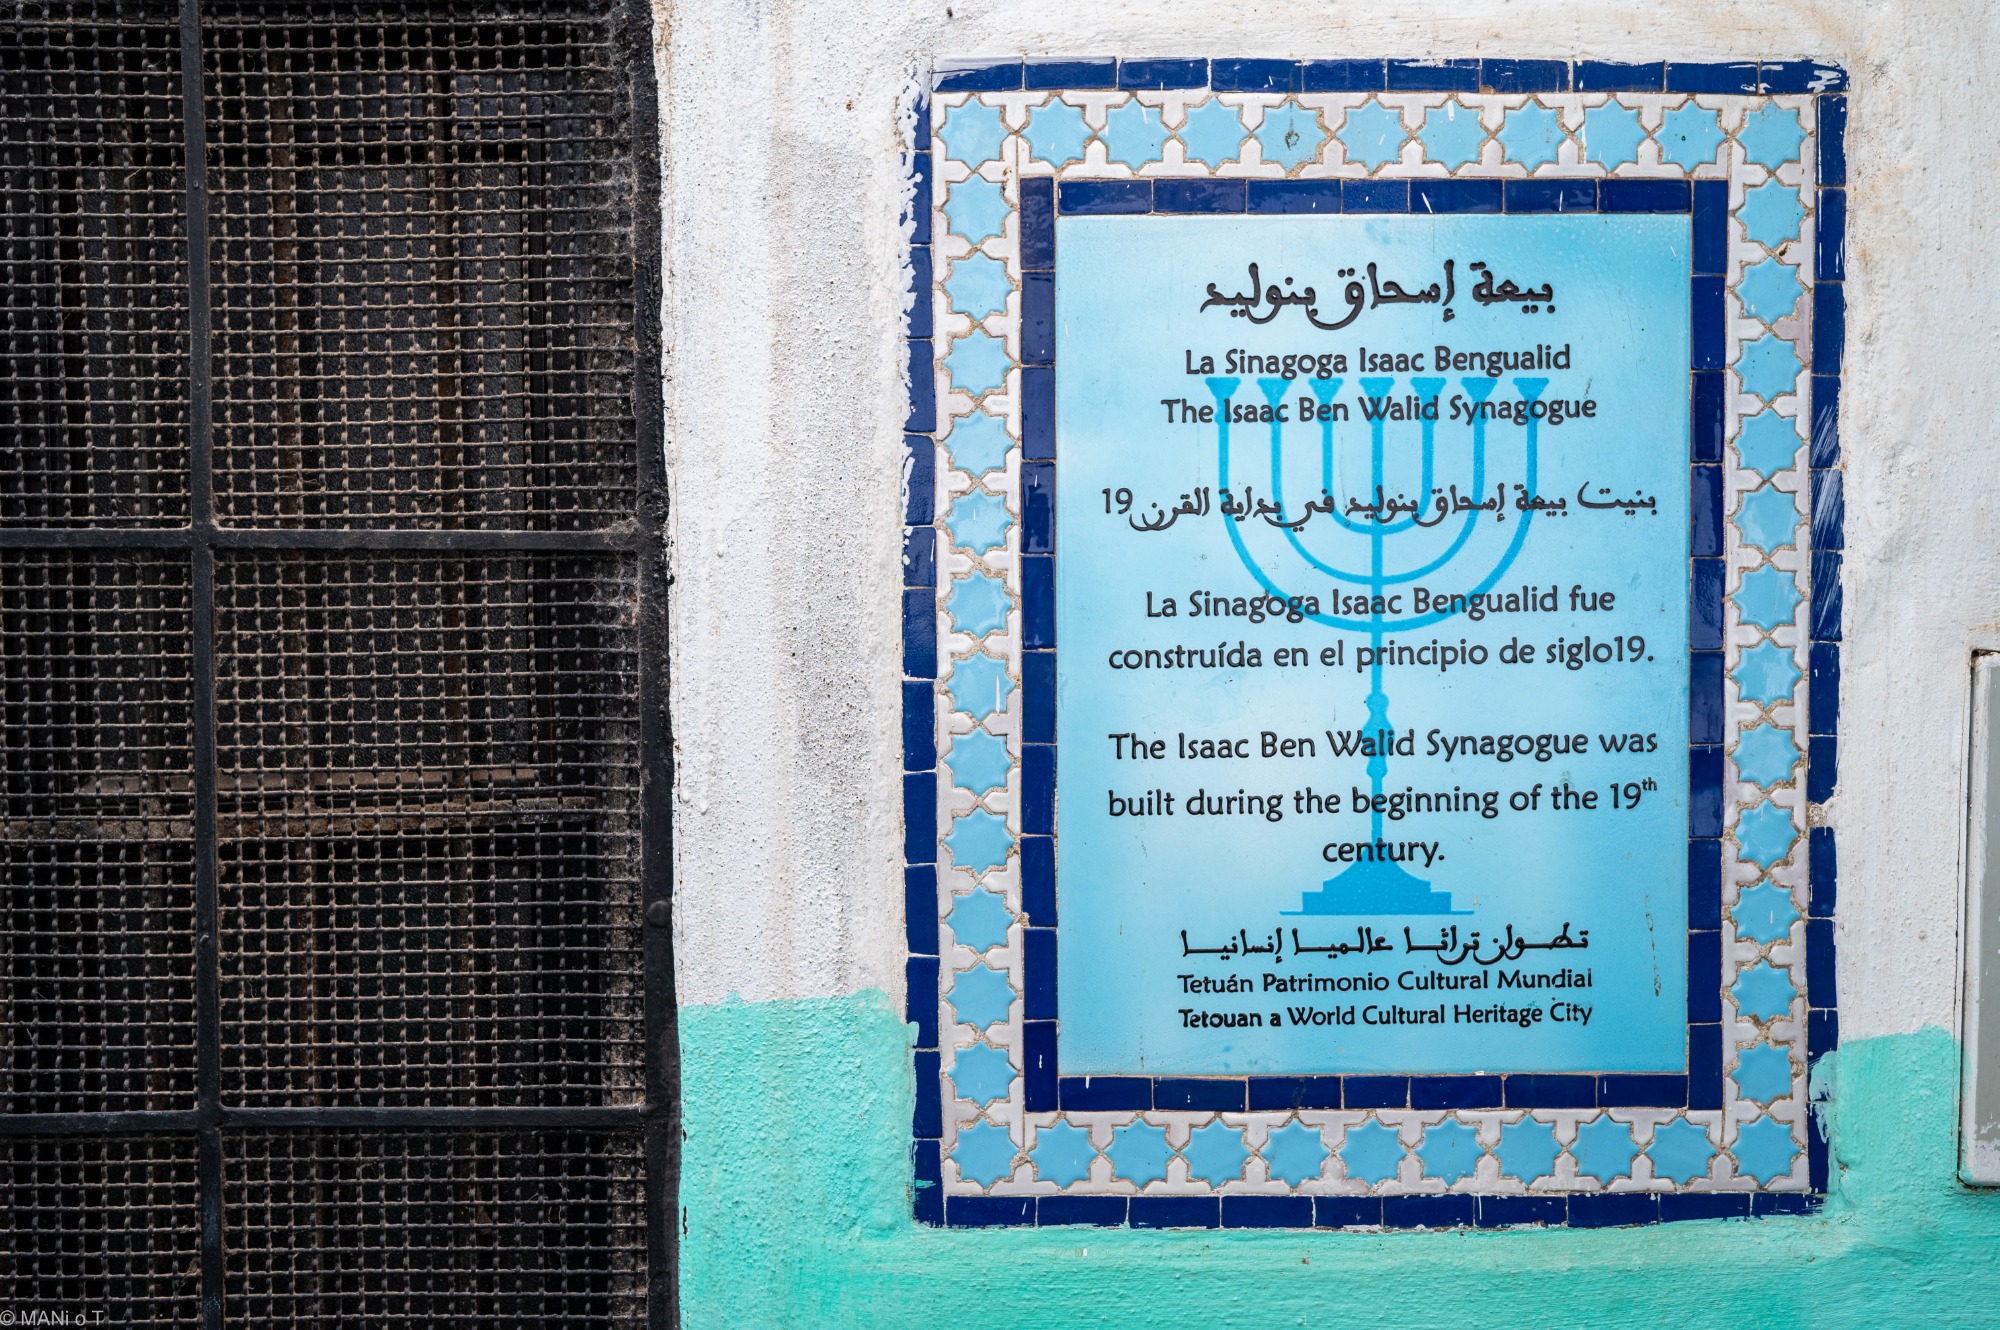 بيعة إسحاق بنوليد
La Sinagoga Isaac Bengualid
The Isaac Ben Walid Synagogue
بنيت بيعة إسحاق بنوليد في بداية القرن 19
La Sinagoga Isaac Bengualid fue
construída en el principio de siglo19.
The Isaac Ben Walid Synagogue was
built during the beginning of the 19th
century.
تطـــوان تراثـــا عالميـــا إنسانيـــا
Tetuán Patrimonio Cultural Mundial
Tetouan a World Cultural Heritage City
© MANi o T